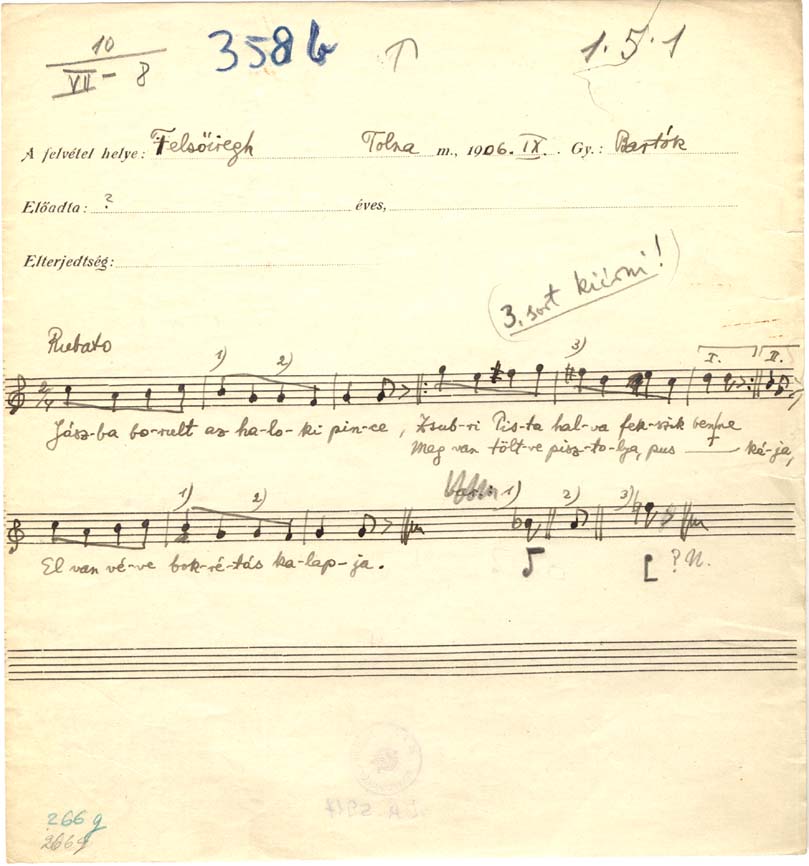 10
VII - 8
358 b
1.5.1
A felvétel helye: Felsőiregh Tolna m., 1906. IX. Gy.: Bartók
Előadta: ? éves,
Elterjedtség:
(3. sort kiírni!)
Rubato
1) 2) 3) I. II.
2/4
Jász-ba bo-rult az ha-lo-ki pin-ce, Zsub-ri Pis-ta hal-va fek-szik benne
Meg van tölt-ve pisz-to-lya, pus — ká-ja,
1) 2) 1) 2) 3)
El van vé-ve bok-ré-tás ka-lap-ja. ? U.
266 g
266 g